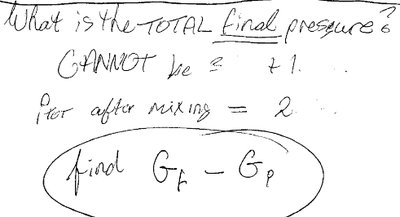 What is the TOTAL final pressure?
CANNOT be 3 + 1 . . .
after mixing = 2 . . .
find Gf - Gp